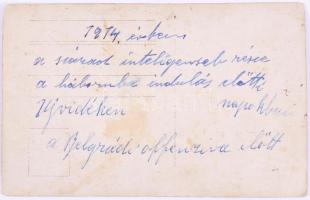 1914. évben
a század inteligensebb része
a háboruba indulás előtti
Ujvidéken napokban
a Belgrádi offenziva előtt